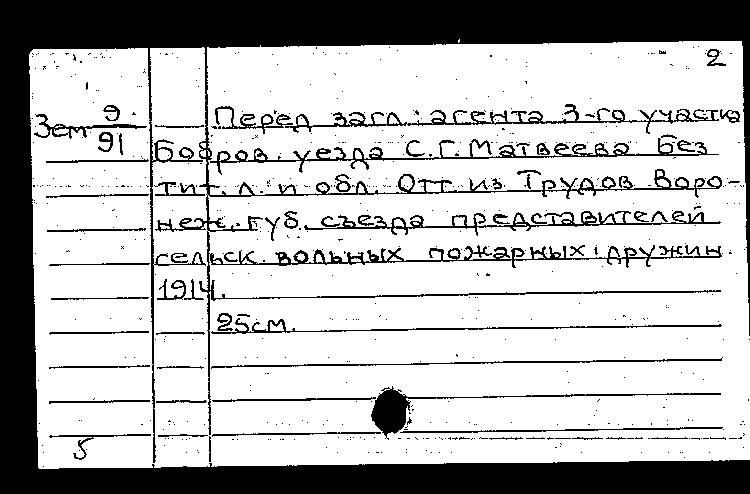 2
Зем 9/91
Перед загл.: агента 3-го участка
Бобров. уезда С.Г. Матвеева. Без
тит. л. и обл. Отт. из Трудов Воро-
неж. губ. съезда представителей
сельск. вольных пожарных дружин.
1914.
25см.
5